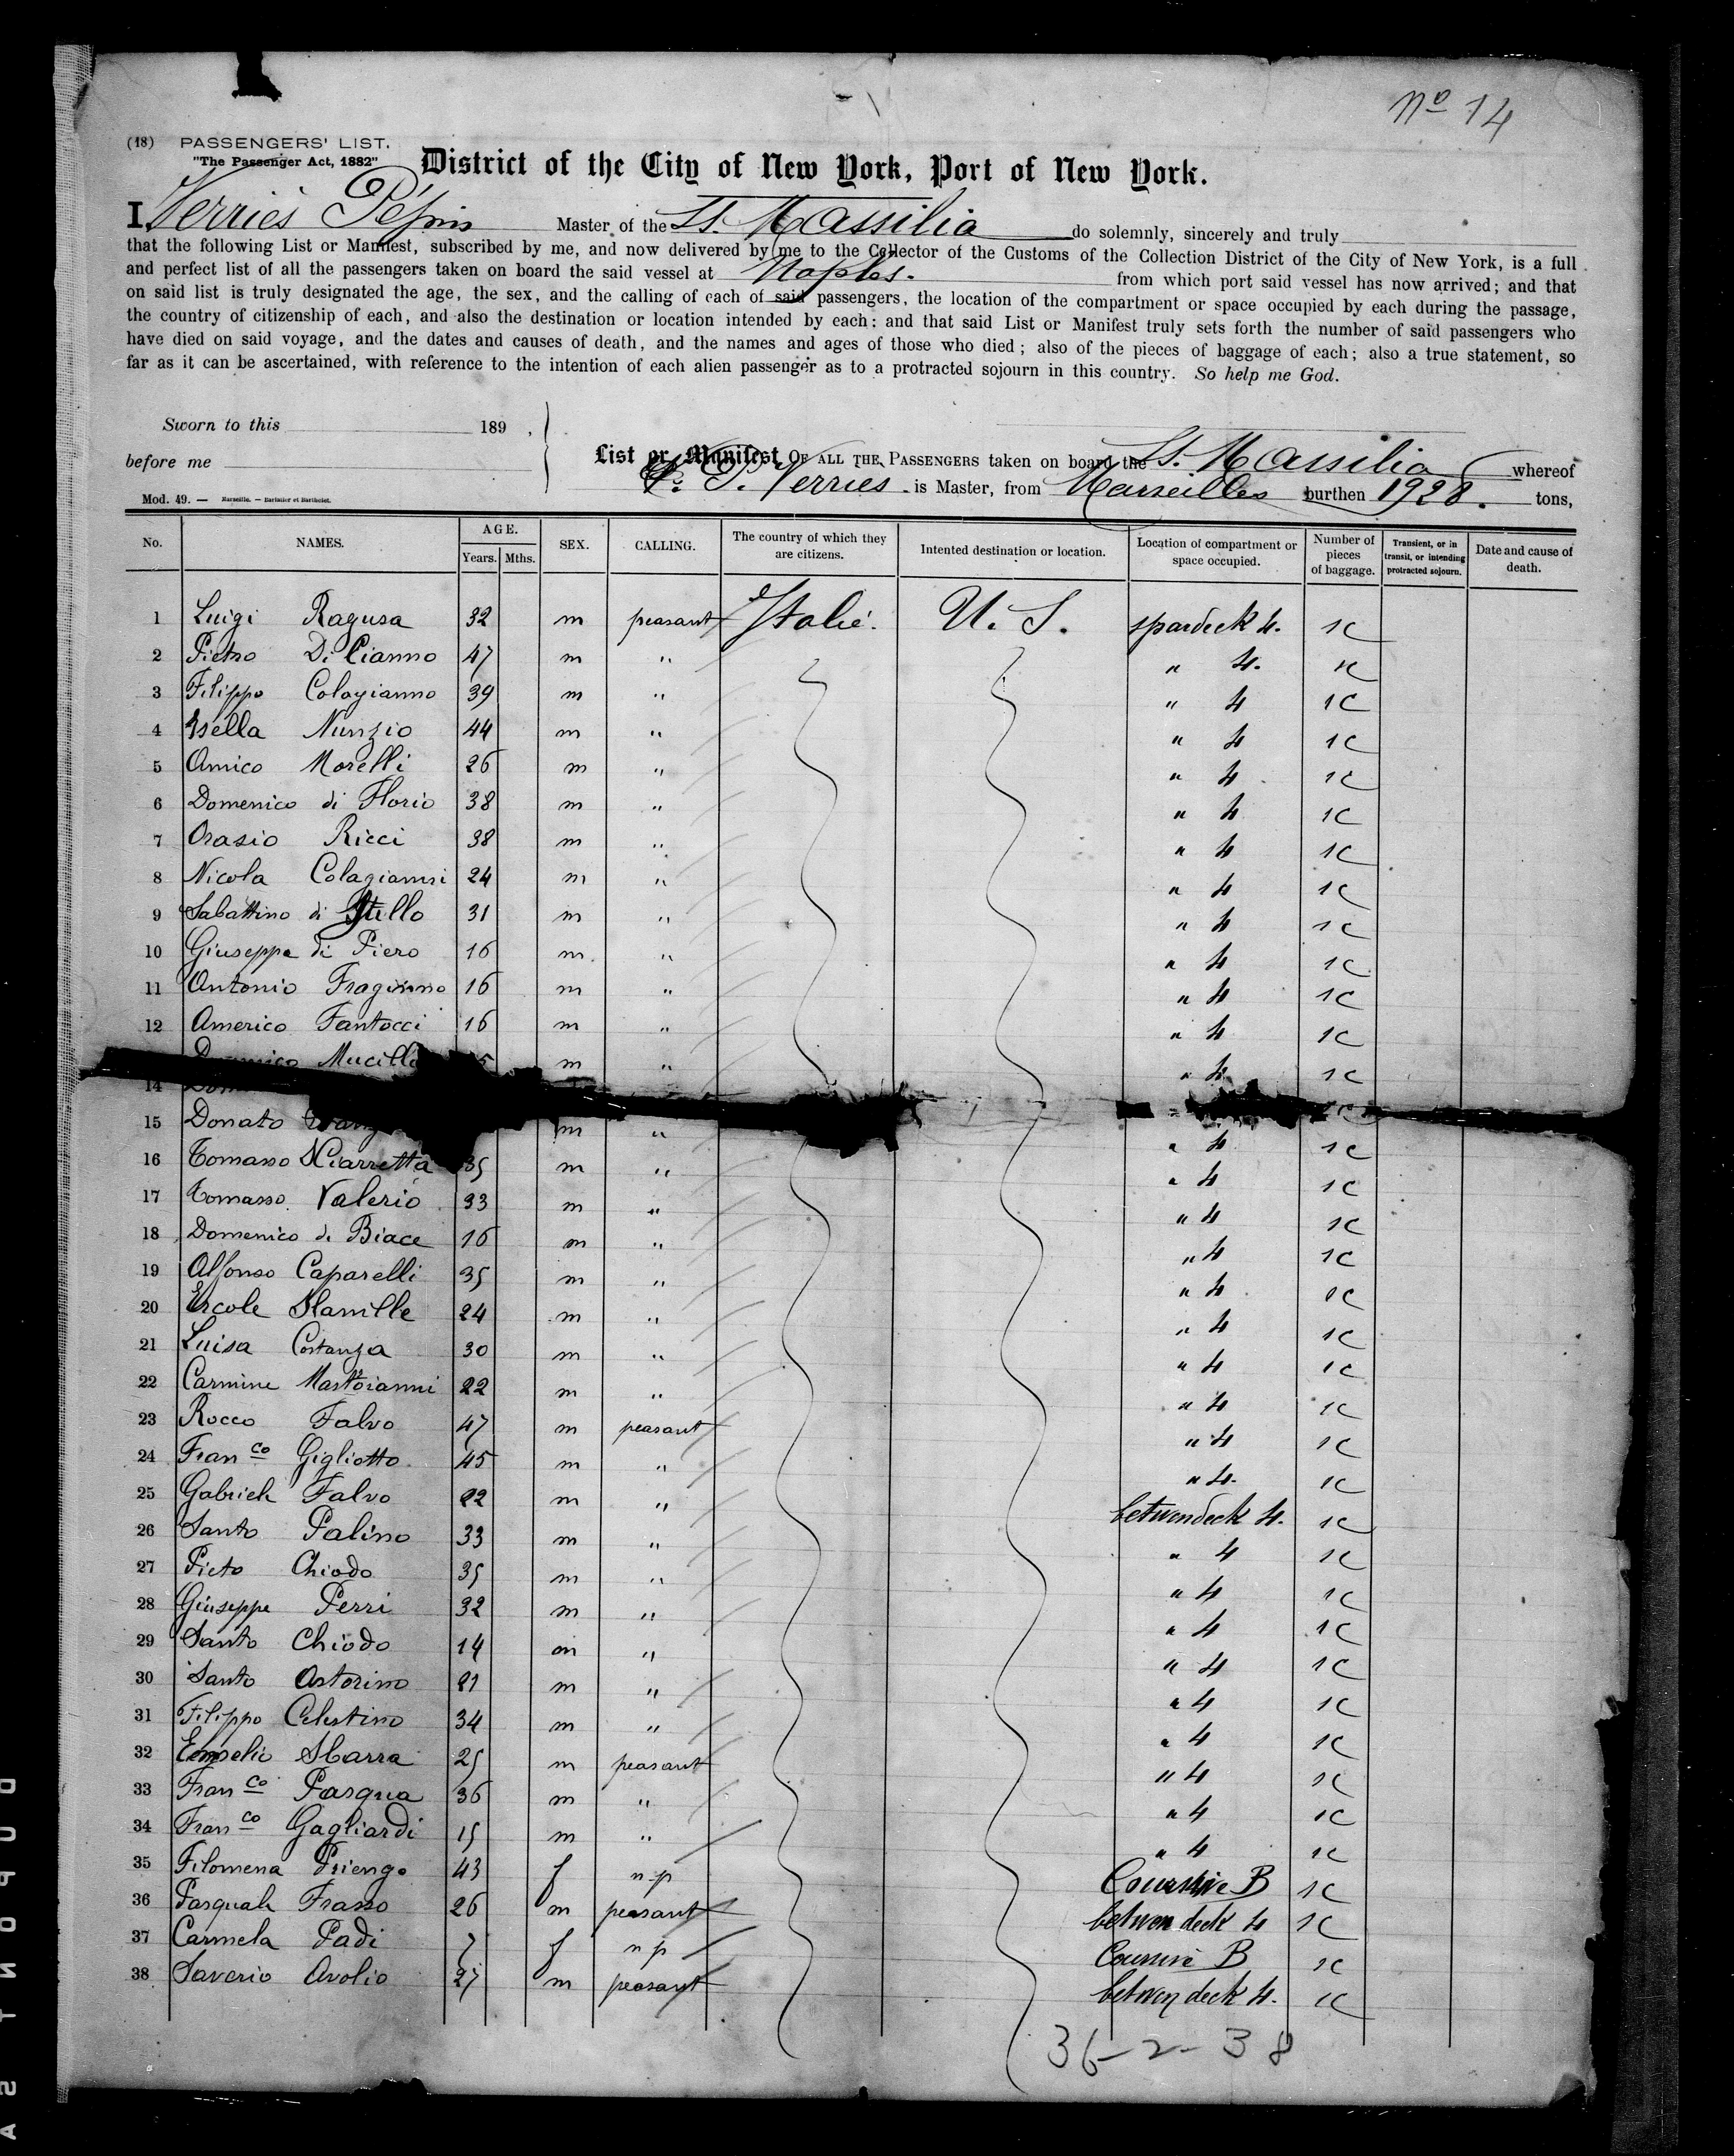 Nº 14
(18) PASSENGERS' LIST.
"The Passenger Act, 1882"
District of the City of New York, Port of New York.
I, Verriès Pépin Master of the SS. Massilia do solemnly, sincerely and truly
that the following List or Manifest, subscribed by me, and now delivered by me to the Collector of the Customs of the Collection District of the City of New York, is a full
and perfect list of all the passengers taken on board the said vessel at Naples. from which port said vessel has now arrived; and that
on said list is truly designated the age, the sex, and the calling of each of said passengers, the location of the compartment or space occupied by each during the passage,
the country of citizenship of each, and also the destination or location intended by each: and that said List or Manifest truly sets forth the number of said passengers who
have died on said voyage, and the dates and causes of death, and the names and ages of those who died; also of the pieces of baggage of each; also a true statement, so
far as it can be ascertained, with reference to the intention of each alien passenger as to a protracted sojourn in this country. So help me God.
Sworn to this 189 ,
before me
List or Manifest OF ALL THE PASSENGERS taken on board the SS. Massilia whereof
P. Verries is Master, from Marseilles burthen 1928. tons,
Mod. 49. — Marseille. — Barlatier et Barthelet.
No. NAMES. AGE. Years. Mths. SEX. CALLING. The country of which they are citizens. Intented destination or location. Location of compartment or space occupied. Number of pieces of baggage. Transient, or in transit, or intending protracted sojourn. Date and cause of death.
1 Luigi Ragusa 32 m peasant Italie. U. S. spardeck 4. 1C
2 Pietro Di Cianno 47 m " " 4. 1C
3 Filippo Colagianno 39 m " " 4 1C
4 Isella Nunzio 44 m " " 4 1C
5 Amico Morelli 26 m " " 4 1C
6 Domenico di Florio 38 m " " 4 1C
7 Orasio Ricci 38 m " " 4 1C
8 Nicola Colagianni 24 m " " 4 1C
9 Sabattino di 31 m " " 4 1C
10 Giuseppe di Piero 16 m " " 4 1C
11 Antonio 16 m " " 4 1C
12 Americo Fantocci 16 m " " 4 1C
Mucill m " " 4 1C
14 " 1C
15 Donato m " " 4 1C
16 Tomasso Sciarretta 35 m " " 4 1C
17 Tomasso Valerio 33 m " " 4 1C
18 Domenico di Biace 16 m " " 4 1C
19 Alfonso Caparelli 35 m " " 4 1C
20 Ercole Stanille 24 m " " 4 1C
21 Luisa Costanza 30 m " " 4 1C
22 Carmine Mastoianni 22 m " " 4 1C
23 Rocco Falvo 47 m peasant " 4 1C
24 Fran co Gigliotto 45 m " " 4. 1C
25 Gabriele Falvo 22 m " betwendeck 4. 1C
26 Santo Palino 33 m " " 4 1C
27 Pieto Chiodo 35 m " " 4 1C
28 Giuseppe Perri 32 m " " 4 1C
29 Santo Chiodo 14 m " " 4 1C
30 Santo Astorino 21 m " " 4 1C
31 Filippo Celestino 34 m " " 4 1C
32 Sbarra 25 m peasant " 4 1C
33 Fran co Pasqua 36 m " " 4 1C
34 Fran co Gagliardi 15 m " " 4 1C
35 Filomena Priengo 43 f n.p Coursive B 1C
36 Pasquale Frasso 26 m peasant betwen deck 4 1C
37 Carmela Padi 7 f n p Coursive B 1C
38 Saverio Avolio 27 m peasant betwen deck 4. 1C
36-2-38